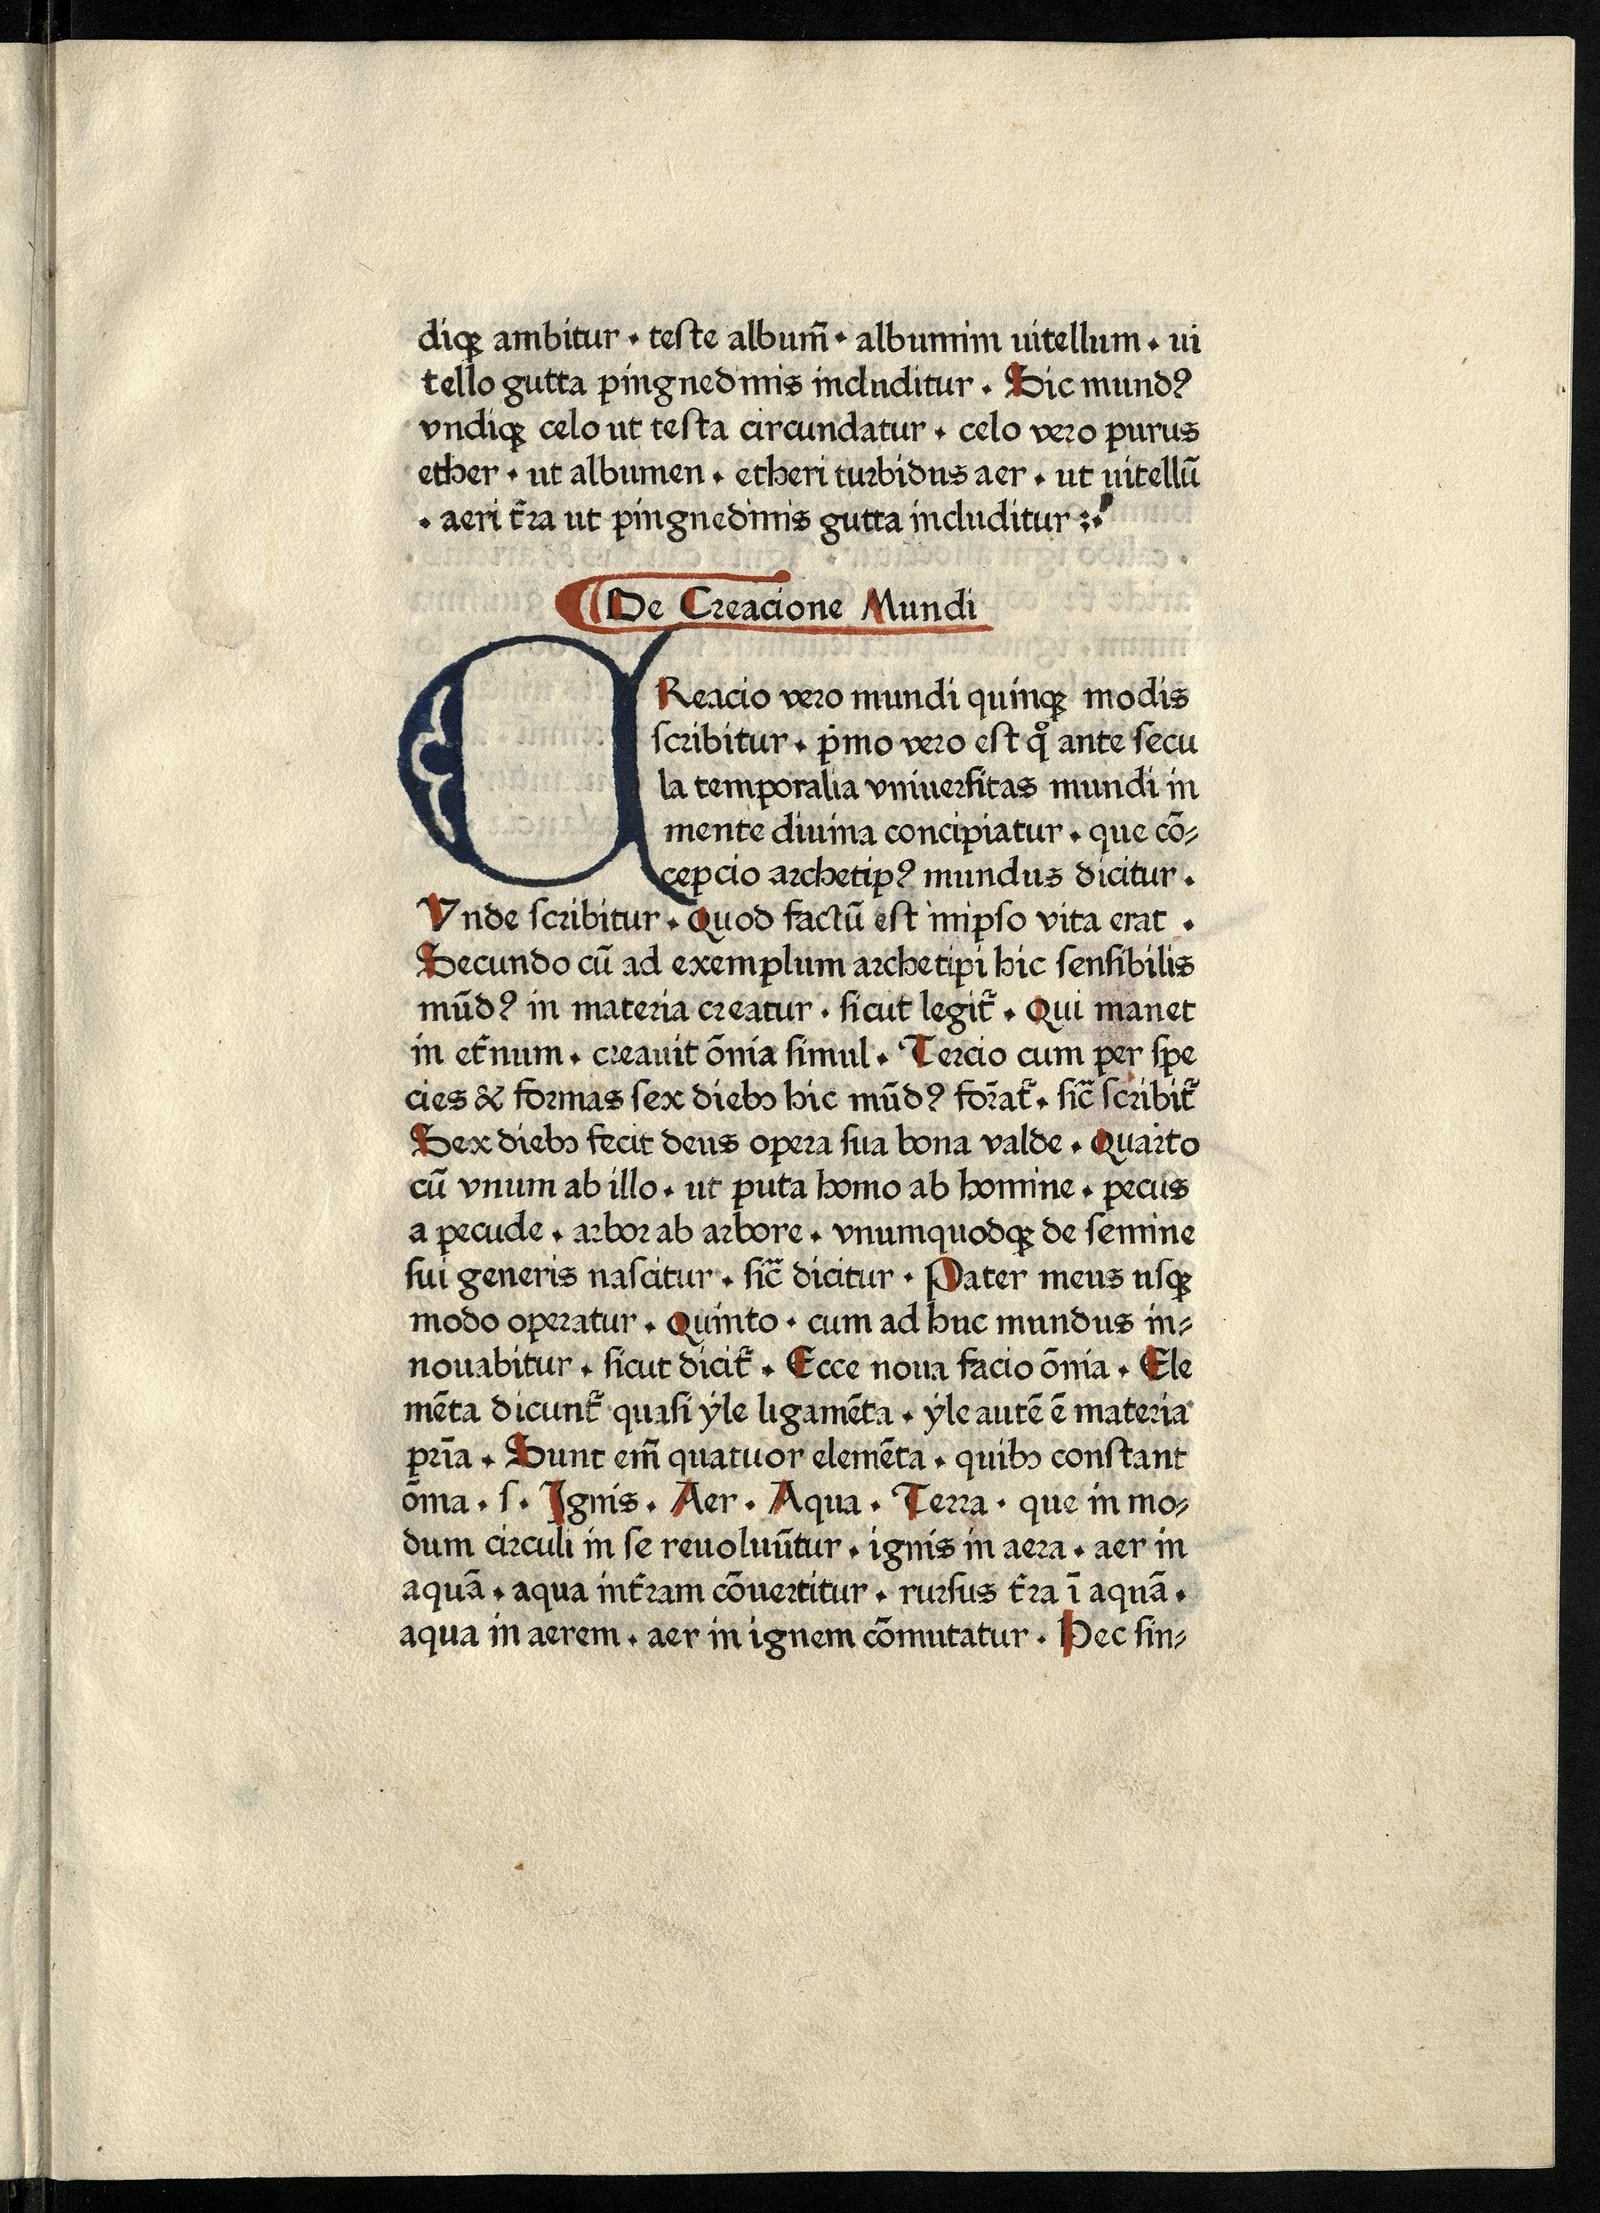 diqꝫ ambitur · teste album̄ · albumim uitellum · ui
tello gutta pingnedinis includitur · Sic mundꝰ
vndiqꝫ celo ut testa circundatur · celo vero purus
ether · ut albumen · etheri turbidus aer · ut uitellū
· aeri t̄ra ut pingnedinis gutta includitur :·
De Creacione Mundi
CReacio vero mundi quinqꝫ modis
scribitur · pͥmo vero est qͦ ante secu
la temporalia vniuersitas mundi in
mente diuina concipiatur · que cō-
cepcio archetipꝰ mundus dicitur ·
Vnde scribitur · Quod factū est inipso vita erat ·
Secundo cū ad exemplum archetipi hic sensibilis
mūdꝰ in materia creatur · sicut legit᷑ · Qui manet
in et̄num · creauit ōnia simul · Tercio cum per spe
cies & formas sex diebꝫ hic mūdꝰ forāt᷑ · sic̄ scribit᷑
Sex diebꝫ fecit deus opera sua bona valde · Quarto
cū vnum ab illo · ut puta homo ab homine · pecus
a pecude · arbor ab arbore · vnumquodqꝫ de semine
sui generis nascitur · sic̄ dicitur · Pater meus usqꝫ
modo operatur · Quinto · cum ad huc mundus in-
nouabitur · sicut dicit᷑ · Ecce noua facio ōnia · Ele
mēta dicunt᷑ quasi ẏle ligamēta · ẏle autē ē materia
prīa · Sunt em̄ quatuor elemēta · quibꝫ constant
ōnia · s · Ignis · Aer · Aqua · Terra · que in mo-
dum circuli in se reuoluūtur · ignis in aera · aer in
aquā · aqua int̄ram cōuertitur · rursus t̄ra ī aquā ·
aqua in aerem · aer in ignem cōmutatur · Hec sin-